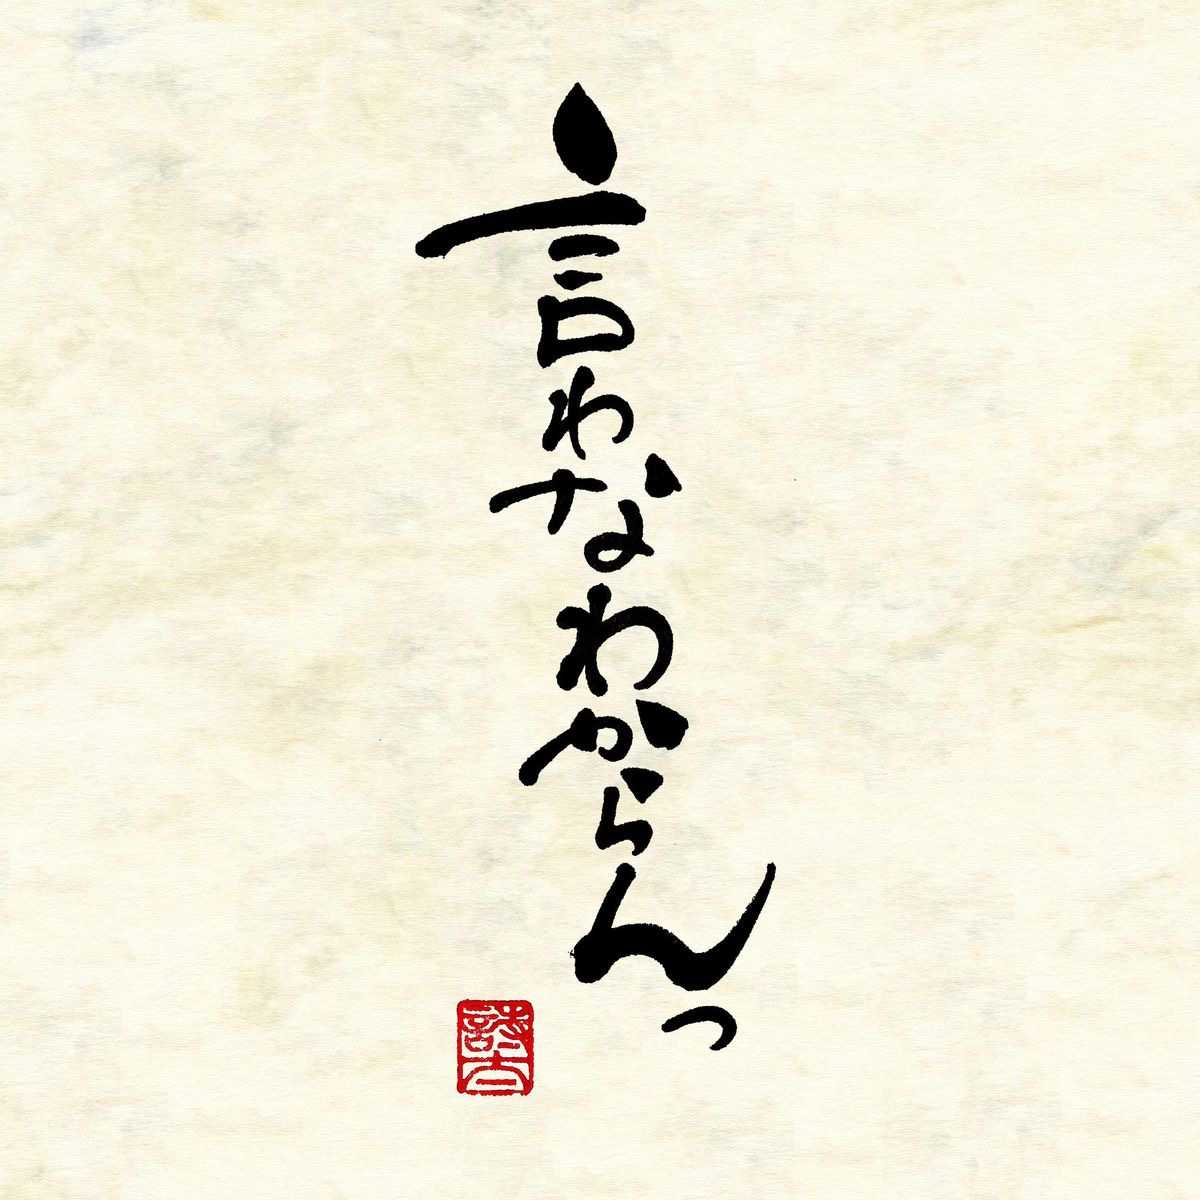 言わなわからんっ